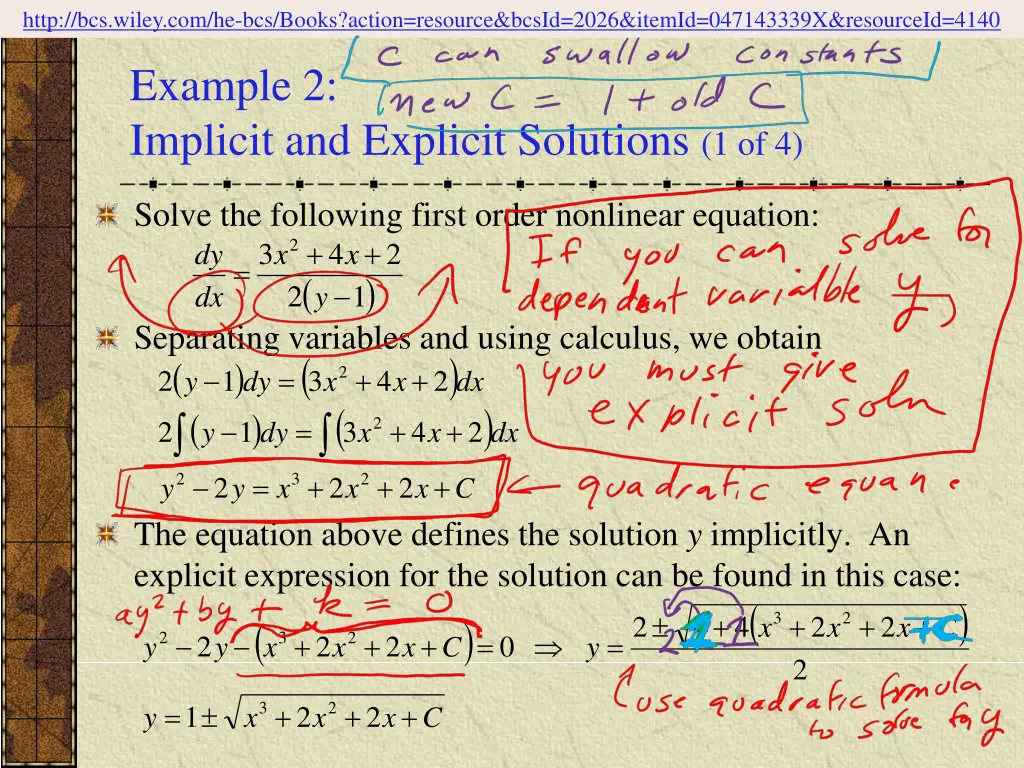 http://bcs.wiley.com/he-bcs/Books?action=resource&bcsId=2026&itemId=047143339X&resourceId=4140
C can swallow constants
Example 2:
new C = 1 + old C
Implicit and Explicit Solutions (1 of 4)
Solve the following first order nonlinear equation:
dy/dx = (3x² + 4x + 2)/(2(y − 1))
If you can solve for
dependent varialble y,
you must give
explicit soln
Separating variables and using calculus, we obtain
2(y − 1)dy = (3x² + 4x + 2)dx
2∫(y − 1)dy = ∫(3x² + 4x + 2)dx
y² − 2y = x³ + 2x² + 2x + C
← quadratic equan.
The equation above defines the solution y implicitly. An
explicit expression for the solution can be found in this case:
ay² + by + k = 0
y² − 2y − (x³ + 2x² + 2x + C) = 0 ⇒ y = (2 ± √(4 + 4(x³ + 2x² + 2x + C)))/2
use quadratic formula
to solve for y
y = 1 ± √(x³ + 2x² + 2x + C)